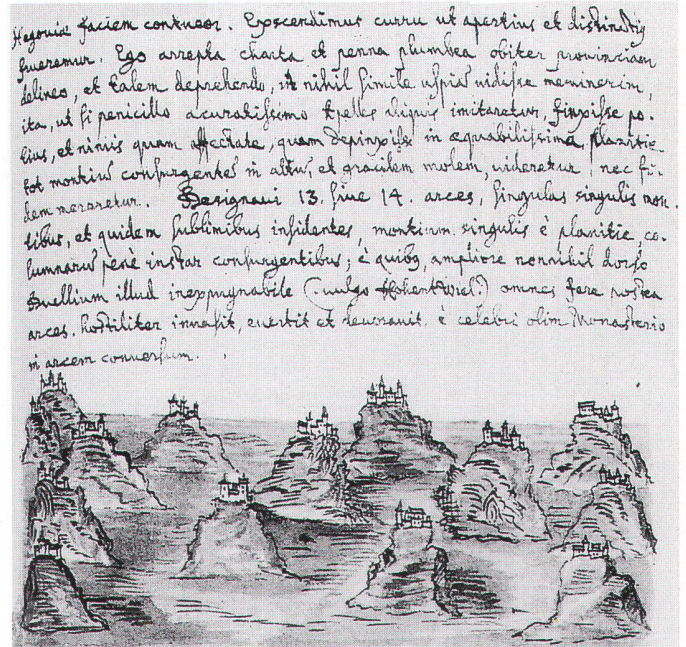 Hegoviæ faciem contueor. Exscendimus curru ut apertius et distinctiꝯ
frueremur. Ego arrepta charta et penna plumbea obiter provinciam
delineo, et talem deprehendo, ut nihil simile uspiā vidisse meminerim,
ita, ut si penicillo acuratissimo Apelles digitis imitaretur, finxisse po-
tius, et nimis quam affectate, quam depinxisse in æquabilissima planitie
tot montiū consurgentes in altū et gracilem molem, videretur, nec fi-
dem mereretur. Designavi 13. sive 14. arces, singulas singulis mon-
tibus, et quidem sublimibus insidentes, montium singulis è planitie, co-
lumnarū penè instar consurgentibus; è quibꝯ, ampliore nonnihil dorso
Duellium illud inexpugnabile (vulgo Hohentwiel.) omnes fere nostra
arces. hostiliter invasit, evertit et devoravit. è celebri olim Monasterio
in arcem conversum.